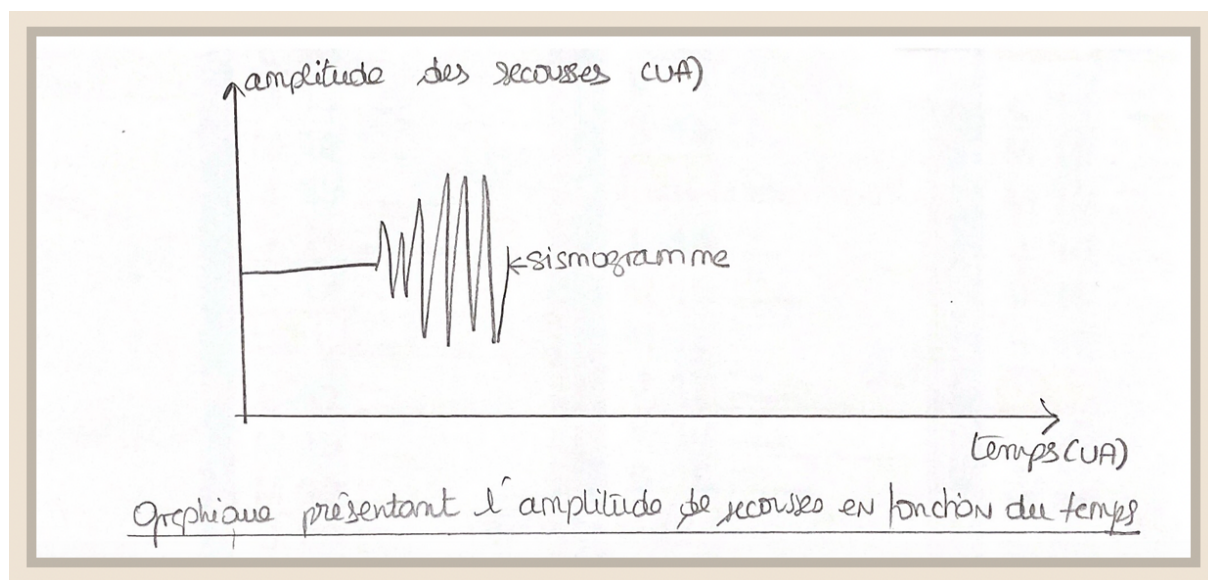 amplitude des secousses (UA)
sismogramme
temps (UA)
Graphique présentant l'amplitude de secousses en fonction du temps